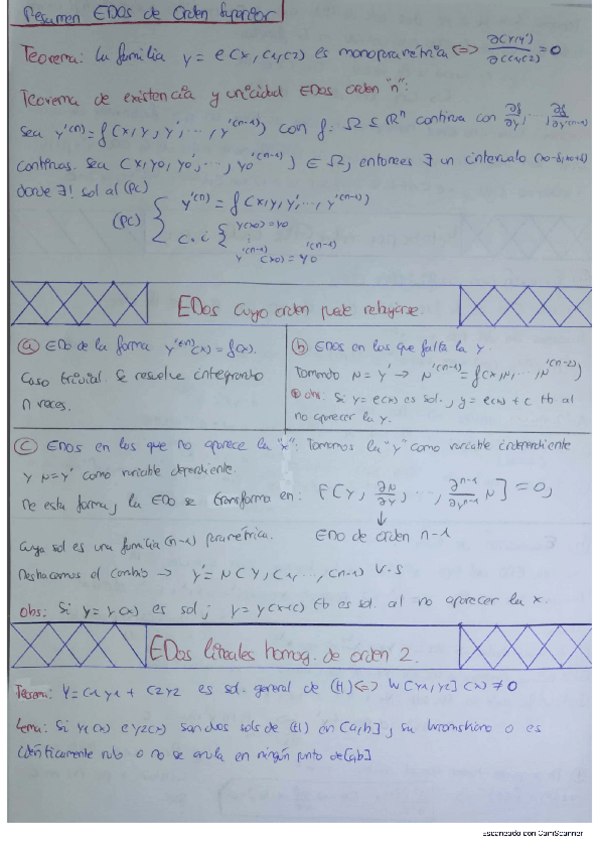 Resumen EDOs de Orden Superior
Teorema: La familia y = φ(x, c1, c2) es monoparamétrica <=> ∂(Y,Y')/∂(c1,c2) = 0
Teorema de existencia y unicidad EDOs orden "n":
Sea y'(n) = f(x, y, y', ..., y'(n-1)) con f: Ω ⊆ ℝⁿ continua con ∂f/∂y, ..., ∂f/∂y'(n-1)
continuas. Sea (x, y0, y0', ..., y0'(n-1)) ∈ Ω, entonces ∃ un intervalo (x0-δ, x0+δ)
donde ∃! sol al (PC)
(PC) { y'(n) = f(x, y, y', ..., y'(n-1))
C.i { y(x0) = y0
y'(n-1)(x0) = y0'(n-1)
EDOs cuyo orden puede rebajarse
(a) EDO de la forma y'(n)(x) = f(x).
Caso trivial. Se resuelve integrando
n veces.
(b) EDOs en los que falta la y.
Tomando N = y' → N'(n-1) = f(x, N, ..., N'(n-2))
obs: Si y = φ(x) es sol., y = φ(x) + c tb al
no aparecer la y.
(c) EDOs en los que no aparece la "x": Tomamos la "y" como variable independiente
y N = y' como variable dependiente.
De esta forma, la EDO se transforma en: F[y, ∂N/∂y, ..., ∂ⁿ⁻¹/∂yⁿ⁻¹ N] = 0,
↓
cuya sol es una familia (n-1) paramétrica. EDO de orden n-1
Deshacemos el cambio → y' = N(y, c1, ..., cn-1) V.S
obs: Si y = y(x) es sol; y = y(x+c) tb es sol. al no aparecer la x.
EDOs lineales homog. de orden 2.
Teorema: y = c1y1 + c2y2 es sol. general de (H) <=> W[y1, y2](x) ≠ 0
Lema: Si y1(x) e y2(x) son dos sols de (H) en [a,b], su wronskiano o es
idénticamente nulo o no se anula en ningún punto de [a,b]
Escaneado con CamScanner